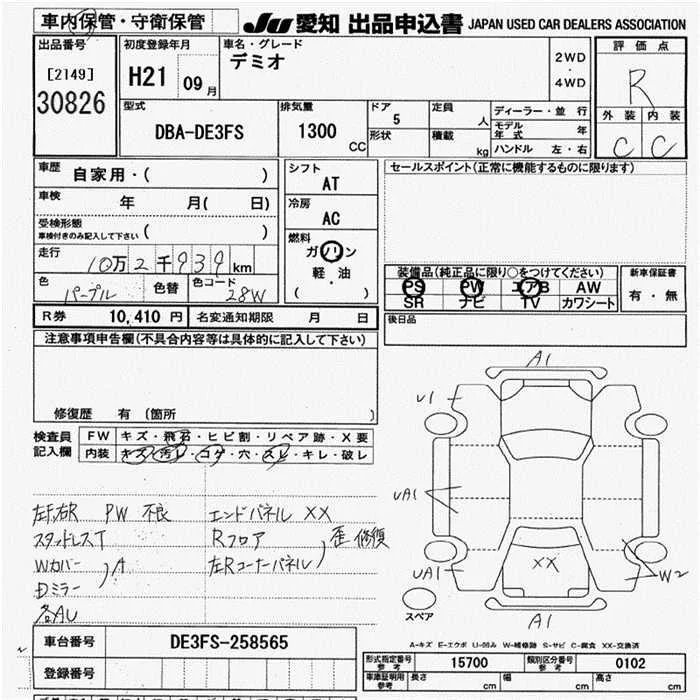 車内保管・守衛保管
JU 愛知 出品申込書 JAPAN USED CAR DEALERS ASSOCIATION
出品番号
[2149]
30826
初度登録年月
H21 09 月
車名・グレード
デミオ
2WD
・
4WD
評価点
R
外装 内装
C C
型式
DBA-DE3FS
排気量
1300 CC
ドア
5
形状
定員
人
積載
kg
ディーラー・並行
モデル年式 年
ハンドル 左・右
車歴 自家用・( )
車検 年 月( 日)
受検形態
車検付きのみ記入して下さい ( )
走行 10万2千939km
色 パープル 色替 色コード 28W
シフト
AT
冷房
AC
燃料
ガソリン
・
軽油
( )
セールスポイント(正常に機能するものに限ります)
装備品(純正品に限り○をつけてください)
PS PW エアB AW
SR ナビ TV カワシート
新車保証書
有・無
後日品
R券 10,410 円 名変通知期限 月 日
注意事項申告欄(不具合内容等は具体的に記入して下さい)
修復歴 有 (箇所 )
検査員
記入欄
FW キズ・飛石・ヒビ割・リペア跡・X要
内装 キズ・汚レ・コゲ・穴・スレ・キレ・破レ
左F,右R PW 不良
スタッドレスT
Wカバー
Dミラー
A
各AU
エンドパネル XX
Rフロア
左Rコーナーパネル
歪 修復
A1
U1
UA1
UA1
XX
W2
A1
スペア
A-キズ E-エクボ U-凹み W-補修跡 S-サビ C-腐食 XX-交換済
車台番号 DE3FS-258565
登録番号
形式指定番号
参考
15700
類別区分番号
参考
0102
車庫証明用
参考
長さ cm 幅 cm 高さ cm